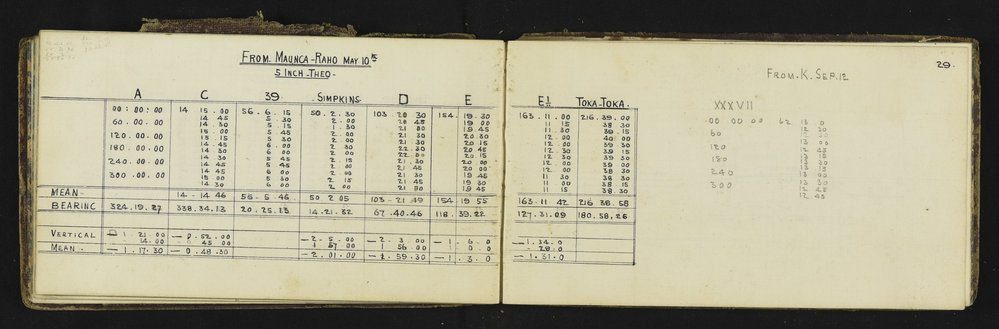 FROM. MAUNGA-RAHO MAY 10TH
5 INCH-THEO-
A C 39 SIMPKINS D E
00:00:00 14 15.00 56.6.15 50.2.30 103.20 30 154.19.30
14 45 5 30 2.00 20 45 19 00
60.00.00 14 30 5 15 1.30 21 00 19 45
15 00 5 45 2.00 21 30 20 30
120.00.00 15 15 5 30 2.00 21 30 20 15
14 45 6 00 2.30 22 30 20 45
180.00.00 14 30 6 00 2 00 22 00 20 15
14 30 5 30 2.15 21.30 20 00
240.00.00 14 45 5 45 2.00 21 45 20 00
14 45 6 00 2 00 21 30 19 45
300.00.00 15 00 5 30 2 15 21 45 19 30
14 30 6 00 2 00 21 00 19 45
MEAN- 14-14 46 56-5-46 50 2 05 103-21.49 154 19 55
BEARING 324.19.27 338.34.13 20.25.13 14.21.32 67.40.46 118.39.22
VERTICAL -1 21 00 -0.52.00 -2-5.00 -2.3.00 -1.6.0
14.00 45 00 1 57 00 1 56.00 1 0.0
MEAN- -1.17.30 -0.48.30 -2.01.00 -1.59.30 -1.3.0
29.
FROM.K. SEP.12
E1 TOKA-TOKA.
163.11.00 216.39.00
11 15 38 30
11 30 39 15
12 00 40 00
12 00 39 30
11 30 39 15
12 30 39 30
12 00 39 00
12 00 38 30
11 30 38 30
11 00 38 15
11 15 38 30
163-11 42 216 38.58
127.31.09 180.58.26
-1.34.0
-28.0
-1.31.0
XXXVII
00 00 00 62 13 0
12 30
60
120 13 00
12 45
180 13 15
12 30
13 15
240 13 00
300 13 30
12 45
12 45